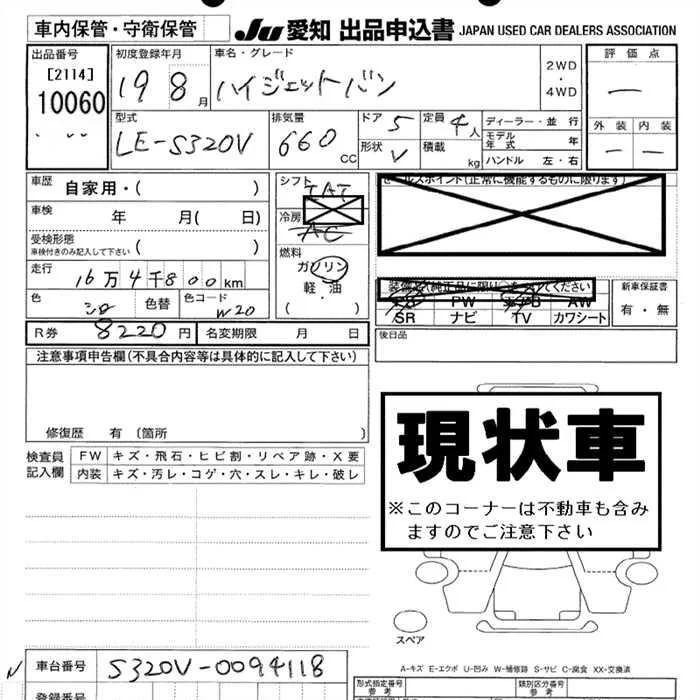 車内保管・守衛保管
JU 愛知 出品申込書 JAPAN USED CAR DEALERS ASSOCIATION
出品番号
[2114]
10060
初度登録年月
19 8月
車名・グレード
ハイジェットバン
2WD
・
4WD
評価点
―
型式
LE-S320V
排気量
660 CC
ドア 5
形状 V
定員 4人
積載 kg
ディーラー・並行
モデル年式 年
ハンドル 左・右
外装 内装
― ―
車歴 自家用・( )
車検 年 月( 日)
受検形態
車検付きのみ記入して下さい ( )
走行 16万4千800km
色 シロ 色替 色コード W20
シフト IAT
冷房 AC
燃料
ガソリン
軽・油
( )
セールスポイント(正常に機能するものに限ります)
装備品(純正品に限り○をつけてください)
PS PW AW
SR ナビ TV カワシート
新車保証書
有・無
R券 8220円 名変期限 月 日
後日品
注意事項申告欄(不具合内容等は具体的に記入して下さい)
修復歴 有 〔箇所 〕
検査員記入欄
FW キズ・飛石・ヒビ割・リペア跡・X要
内装 キズ・汚レ・コゲ・穴・スレ・キレ・破レ
現状車
※このコーナーは不動車も含み
ますのでご注意下さい
スペア
A-キズ E-エクボ U-凹み W-補修跡 S-サビ C-腐食 XX-交換済
車台番号 S320V-0094118
登録番号
型式指定番号
参考
類別区分番号
参考